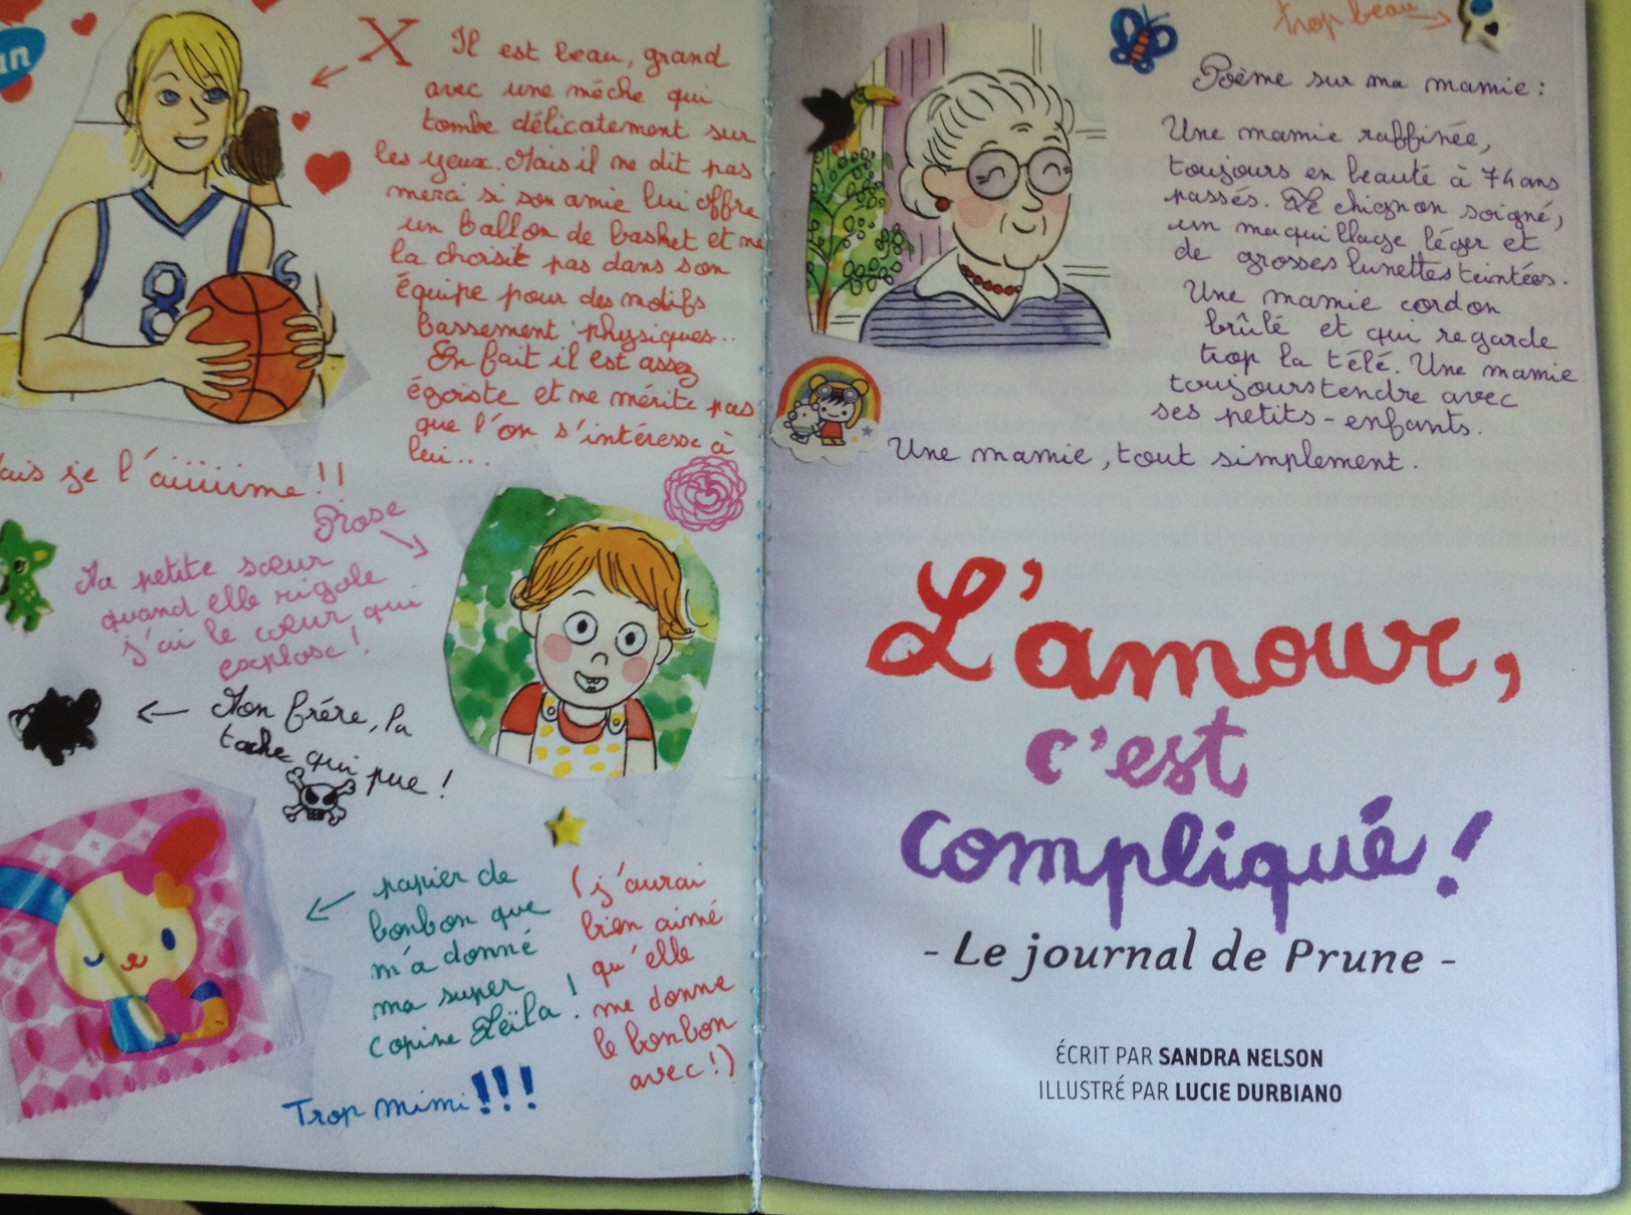 X
Il est beau, grand
avec une mèche qui
tombe délicatement sur
les yeux. Mais il ne dit pas
merci si son amie lui offre
un ballon de basket et ne
la choisit pas dans son
équipe pour des motifs
bassement physiques..
En fait il est assez
égoïste et ne mérite pas
que l'on s'intéresse à
lui...
8
Mais je l'aiiiiime !!
Rose
Ma petite sœur
quand elle rigole
j'ai le cœur qui
explose !
Mon frère, la
tache qui pue !
papier de
bonbon que
m'a donné
ma super
copine Leïla !
(j'aurai
bien aimé
qu'elle
me donne
le bonbon
avec !)
Trop mimi !!!
trop beau
Poème sur ma mamie :
Une mamie raffinée,
toujours en beauté à 74 ans
passés. Le chignon soigné,
un maquillage léger et
de grosses lunettes teintées.
Une mamie cordon
brûlé et qui regarde
trop la télé. Une mamie
toujours tendre avec
ses petits-enfants.
Une mamie, tout simplement.
L'amour,
c'est
compliqué !
- Le journal de Prune -
ÉCRIT PAR SANDRA NELSON
ILLUSTRÉ PAR LUCIE DURBIANO